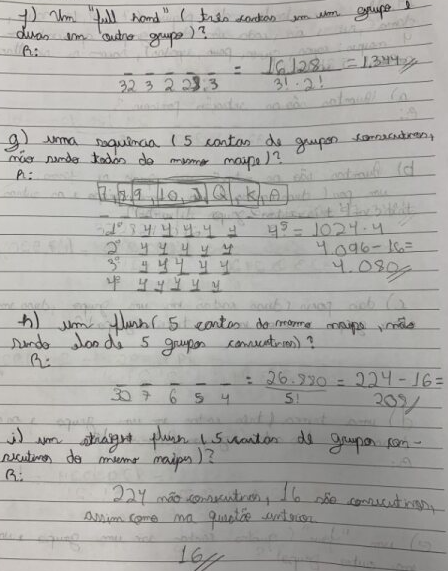 f) Um "full hand" (três cartas em um grupo e
duas em outro grupo)?
R:
32 3 2 28 3 = 16128 = 1.344
3! . 2!
g) uma sequência (5 cartas de grupos consecutivos,
não sendo todas do mesmo naipe)?
R:
7, 8, 9, 10, J, Q, K, A
1º 4 4 4 4 4 4⁵ = 1024 . 4
2º 4 4 4 4 4 4.096 - 16 =
3º 4 4 4 4 4 4.080
4º 4 4 4 4 4
h) um flush (5 cartas do mesmo naipe, não
sendo elas de 5 grupos consecutivos)?
R:
7 6 5 4 = 26.880 = 224 - 16 =
5! 208
i) um straight flush (5 cartas de grupos con-
secutivos do mesmo naipe)?
R:
224 não consecutivos, 16 são consecutivos,
assim como na questão anterior
16